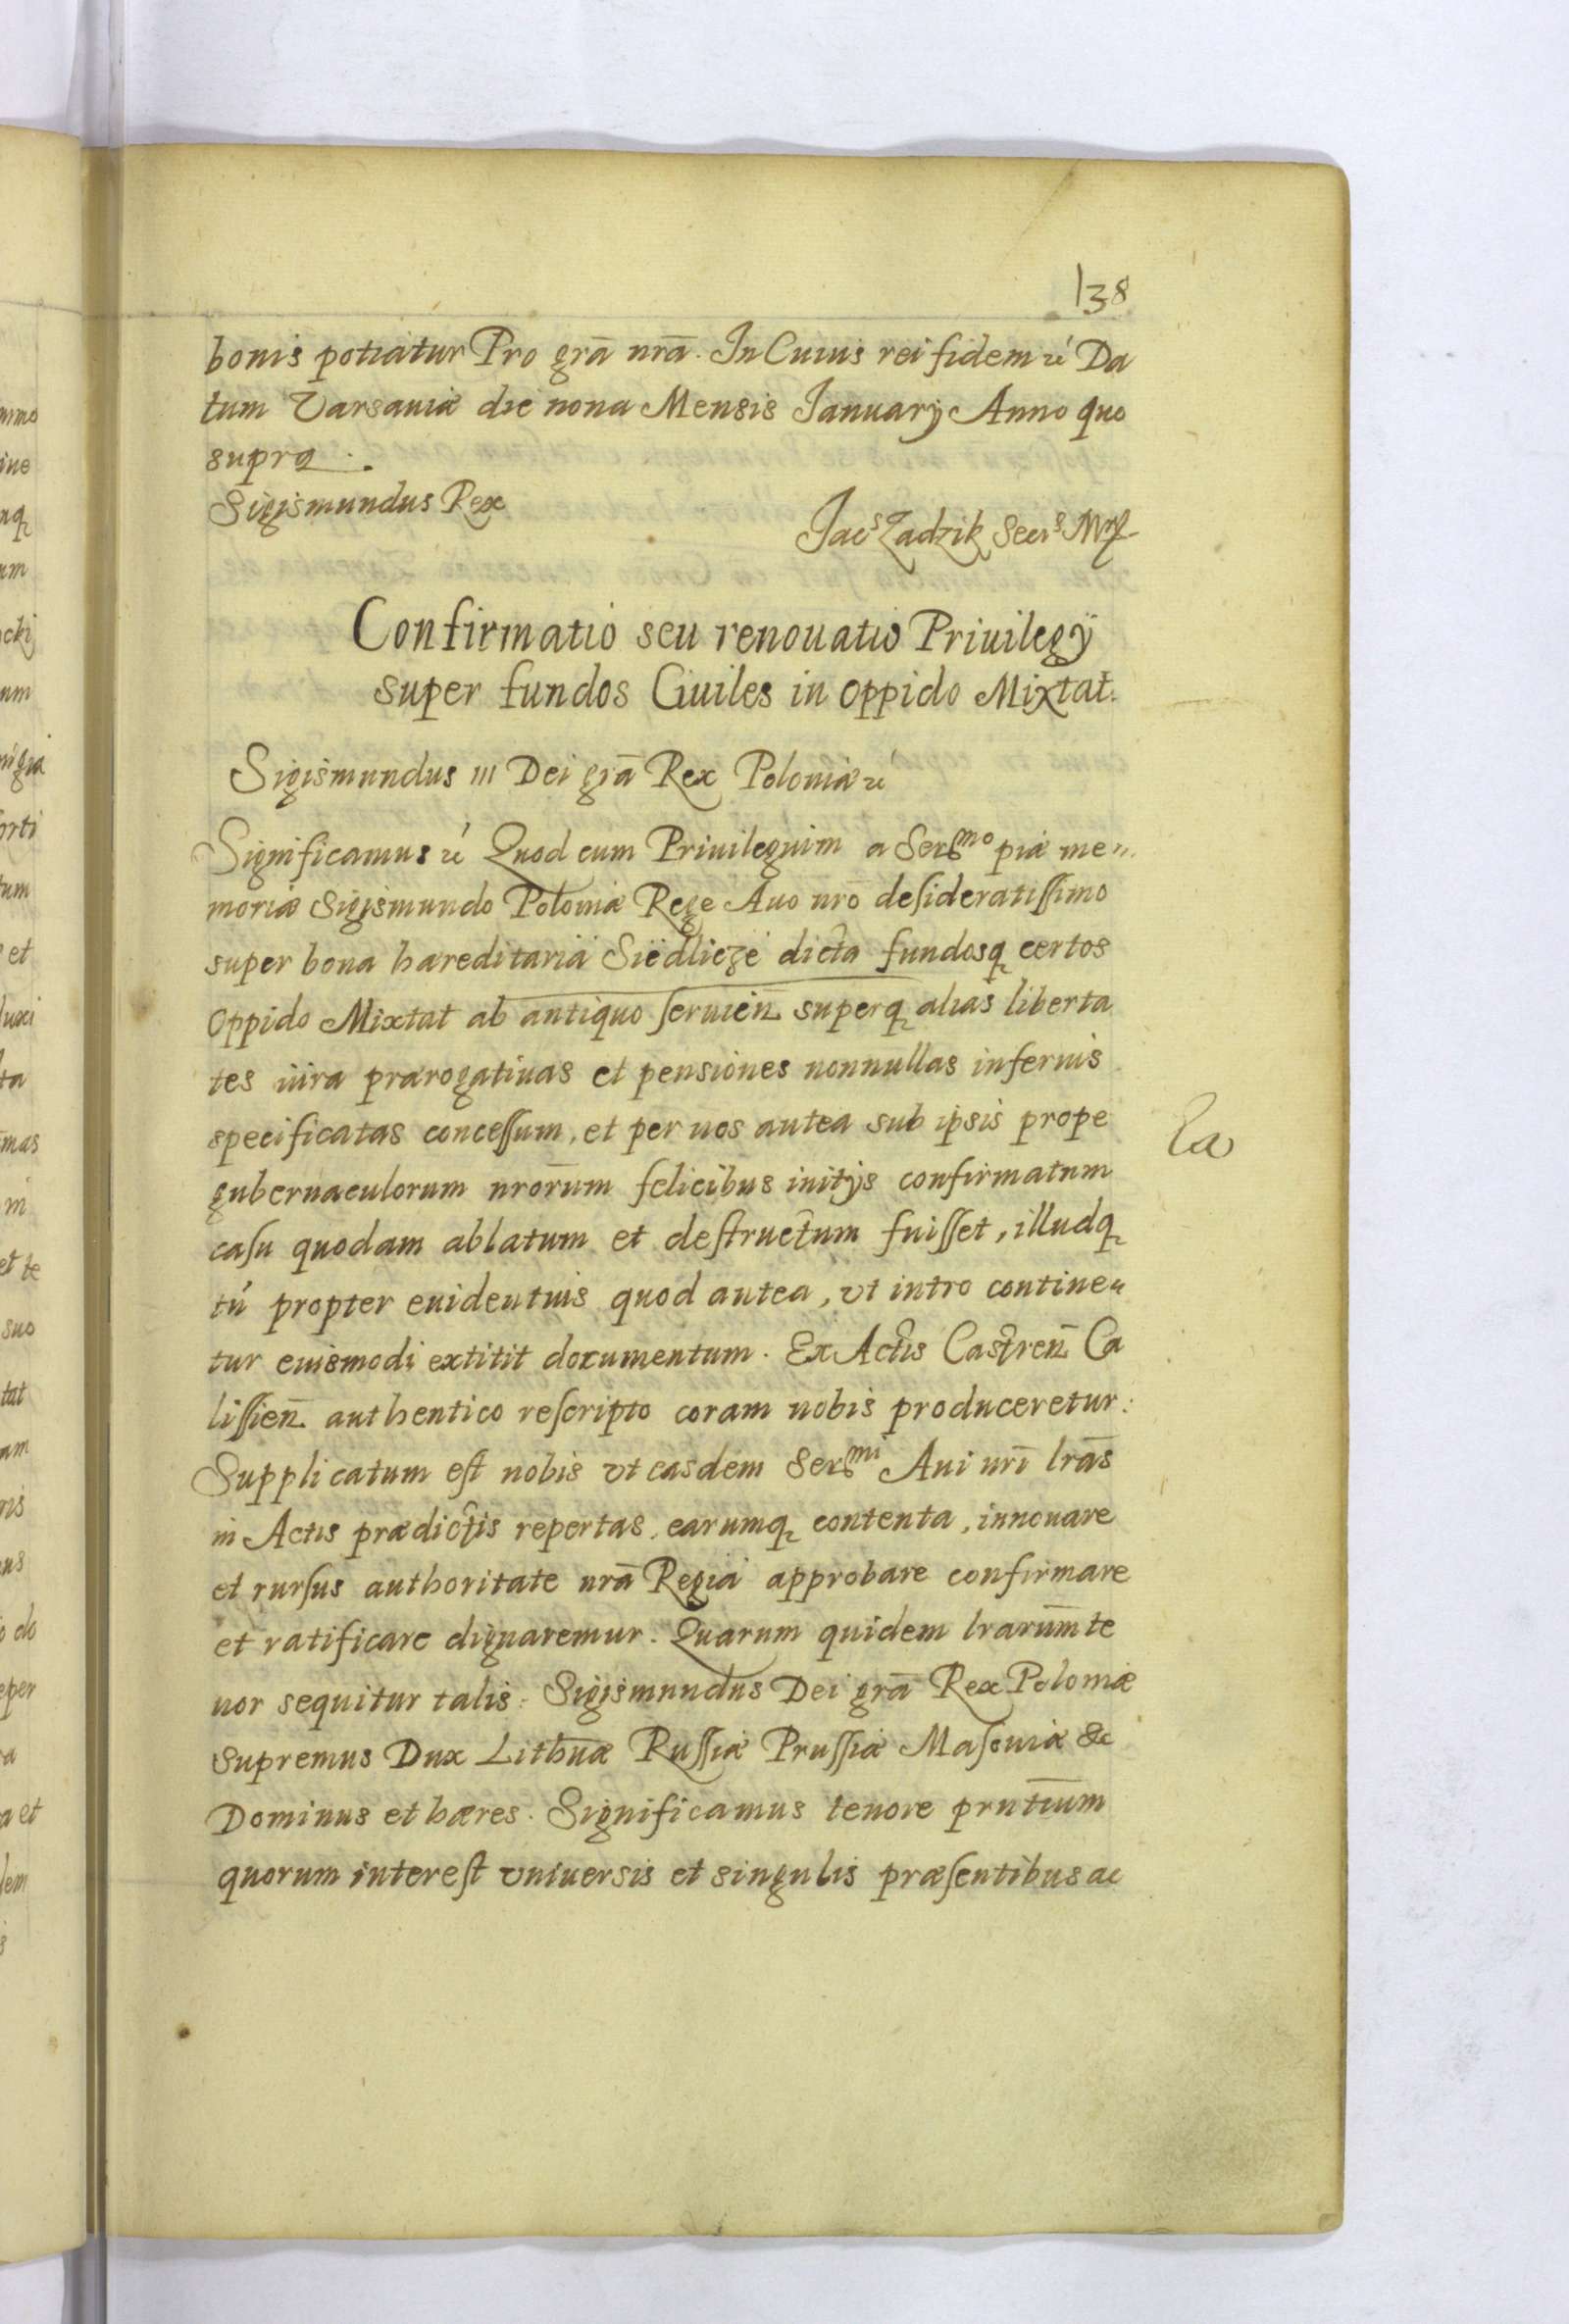 138
bonis potiatur Pro grã nrã. In Cuius rei fidem &c Da
tum Varsauiæ die nona Mensis Ianuarij Anno quo
supra.
Sigismundus Rex
Jacs Zadzik Secrs
Confirmatio seu renouatio Priuilegÿ
super fundos Ciuiles in oppido Mixtat.
Sigismundus III Dei grã Rex Poloniæ &c
Significamus &c Quod cum Priuilegium a Sermo piæ me
moriæ Sigismundo Poloniæ Rege Auo nrõ desideratissimo
super bona hæreditaria Siedlicze dicta fundosq certos
oppido Mixtat ab antiquo seruien superq alias liberta
tes iura prærogatiuas et pensiones nonnullas inferius
specificatas concessum, et per nos antea sub ipsis prope
gubernaculorum nrorum felicibus initys confirmatum
casu quodam ablatum et destructum fuisset, illudq
tú propter euidentius quod antea, vt intro contine
tur euismodi extitit documentum. Ex Actis Castren Ca
lissien authentico rescripto coram nobis produceretur:
Supplicatum est nobis vt easdem Sermi Aui nrĩ lrãs
in Actis prædictis repertas, earumq contenta, innouare
et rursus authoritate nrã Regia approbare confirmare
et ratificare dignaremur. Quarum quidem lrarum te
nor sequitur talis: Sigismundus Dei grã Rex Poloniæ
supremus Dux Lithuæ Russiæ Prussiæ Masouiæ &c
Dominus et hæres. Significamus tenore prntium
quorum interest vniuersis et singulis præsentibus ac